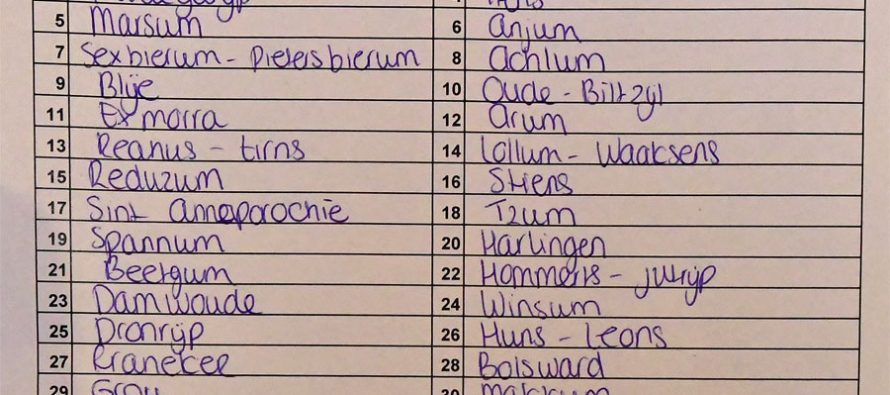 5 Marsum 6 Anjum
7 Sexbierum - Pietersbierum 8 Achlum
9 Blije 10 Oude - Biltzyl
11 Exmorra 12 Arum
13 Reanus - tirns 14 Lollum - Waaksens
15 Reduzum 16 Stiens
17 Sint Annaparochie 18 Tzum
19 Spannum 20 Harlingen
21 Beetgum 22 Hommerts - jutrijp
23 Damwoude 24 Winsum
25 Dronrijp 26 Huns - Leons
27 Franeker 28 Bolsward
29 Grou 30 Makkum